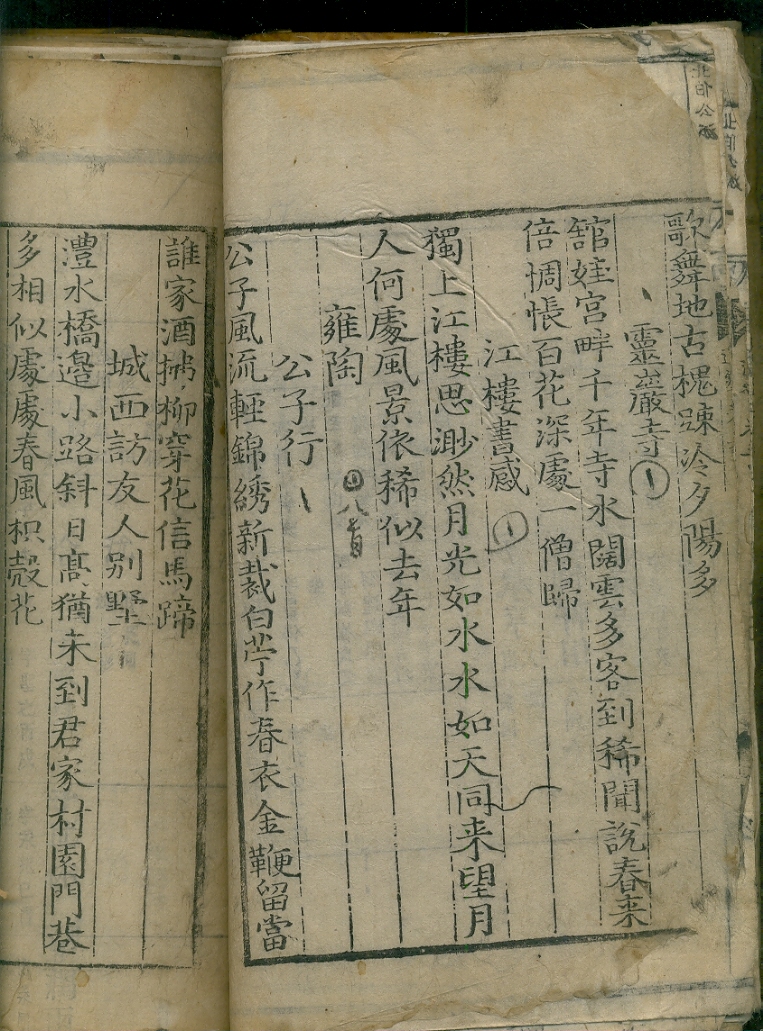 歌舞地古槐踈冷夕陽多
靈巖寺
舘娃宮畔千年寺水闊雲多客到稀聞說春来
倍惆悵百花深處一僧歸
江樓書感
獨上江樓思渺然月光如水水如天同来望月
人何處風景依稀似去年
雍陶
八首
公子行
公子風流輕錦綉新裁白苧作春衣金鞭留當
誰家酒拂柳穿花信馬蹄
城西訪友人別墅
澧水橋邉小路斜日髙猶未到君家村園門巷
多相似處處春風枳殼花